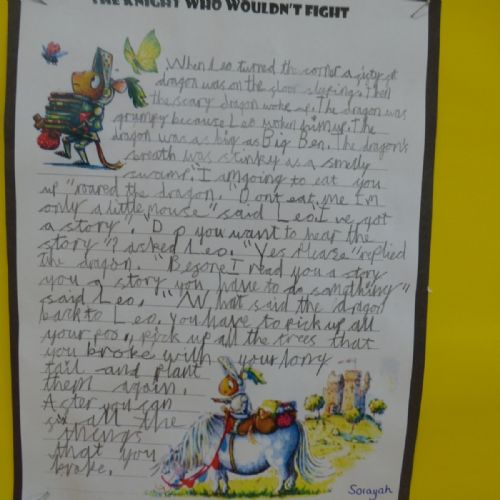 THE KNIGHT WHO WOULDN'T FIGHT
When Leo turned the corner a
dragon was on the floor sleeping. Then
the scary dragon woke up. The dragon was
grumpy because Leo woken him up. The
dragon was as big as Big Ben. The dragon's
breath was stinky as a smelly
swamp. I am going to eat you
up "roared the dragon. "Dont eat me I'm
only a little mouse" said Leo. I've got
a story". "Do you want to hear the
story"? asked Leo. "Yes please" replied
the dragon. "Before I read you a story
you a story you have to do something"
said Leo. "What said the dragon
back to Leo. you have to pick up all
your poo, pick up all the trees that
you broke with your long
tail and plant
them again.
After you can
all the
things
that you
broke.
Sorayah